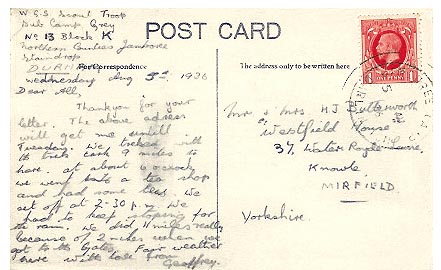 W.G.S Scout Troop
Sub Camp Grey
No 13 Block K
Northern Counties Jamboree
Staindrop
DURHAM
POST CARD
For Correspondence
The address only to be written here
Wednesday Aug 5th 1936
Dear All,
Thankyou for your
letter. The above adress
will get me untill
Tuesday. We treked with
the trek cart 9 miles to
here. at about 6 o'clock
we went into a tea shop
and had some tea. We
set off at 2-30 p.m. We
had to keep stoping for
the rain. We did 11 miles really
because of 2 miles when we
got to the Gates. Fair weather
here with love from
Geoffrey.
Mr & Mrs H.J Butterworth
Westfield House
37, Water Royd Lane,
Knowle
MIRFIELD.
Yorkshire.